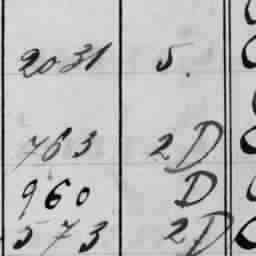 2031 5.
763 2D
960 D
573 2D